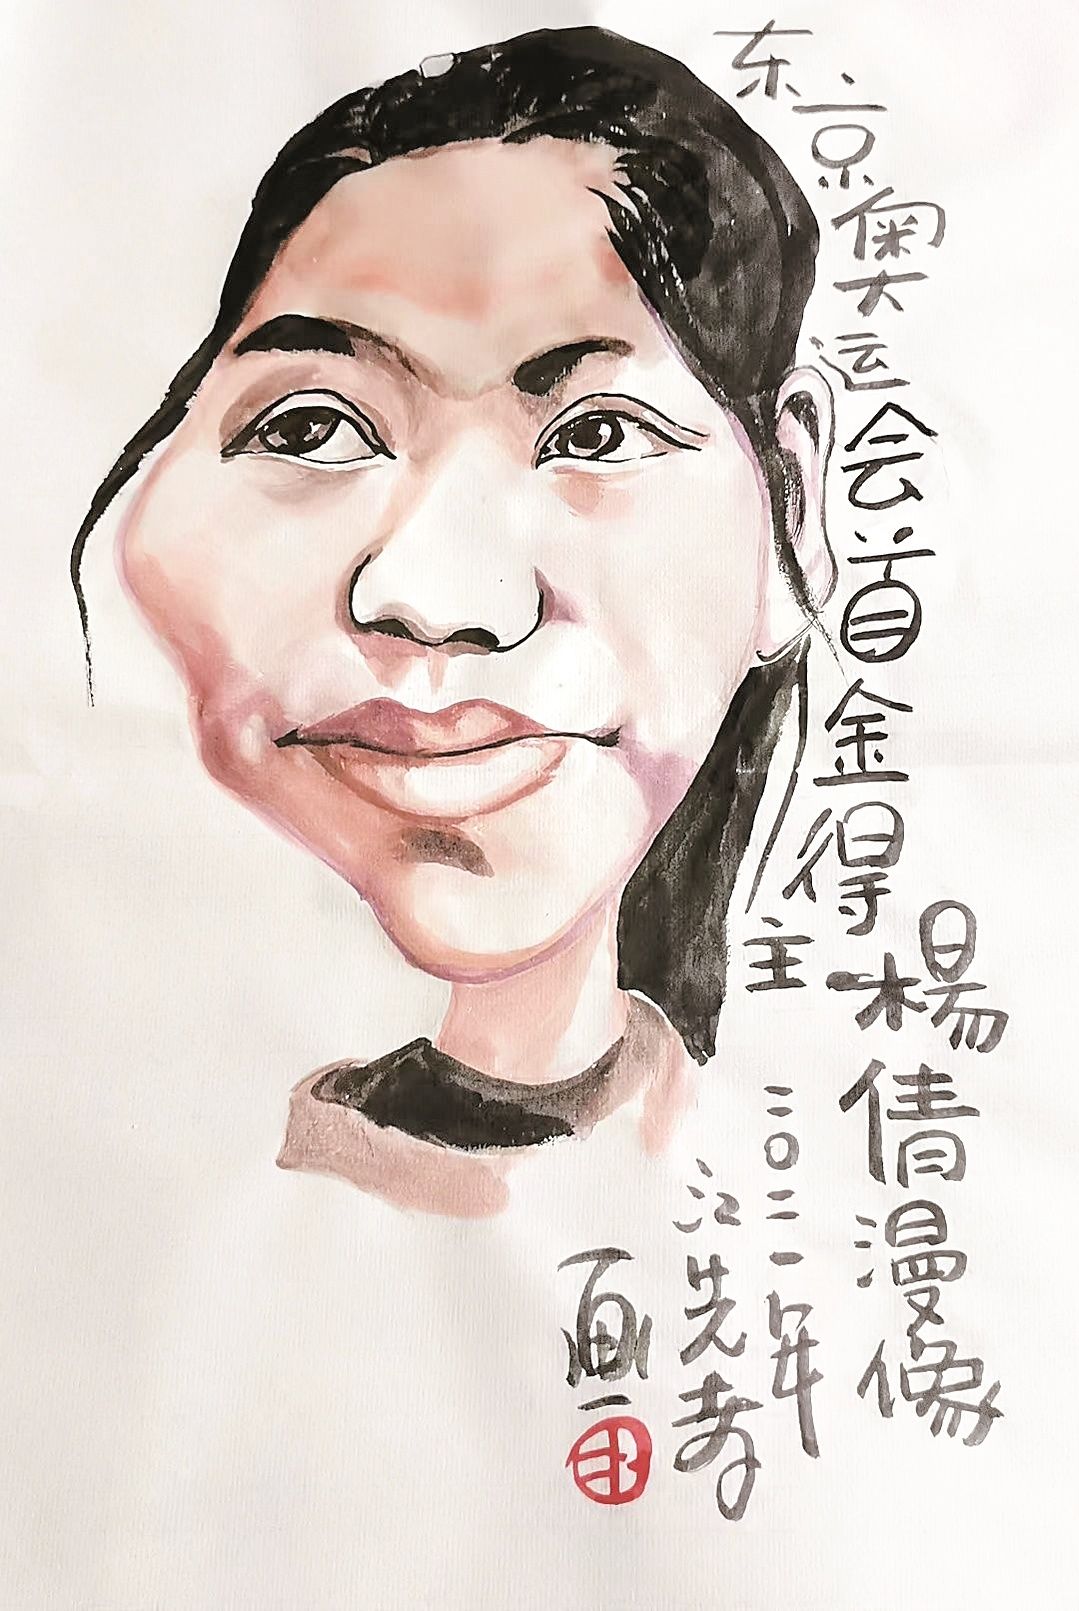 东京奥运会首金得主
楊倩漫像
二〇二一年
江先孝
画